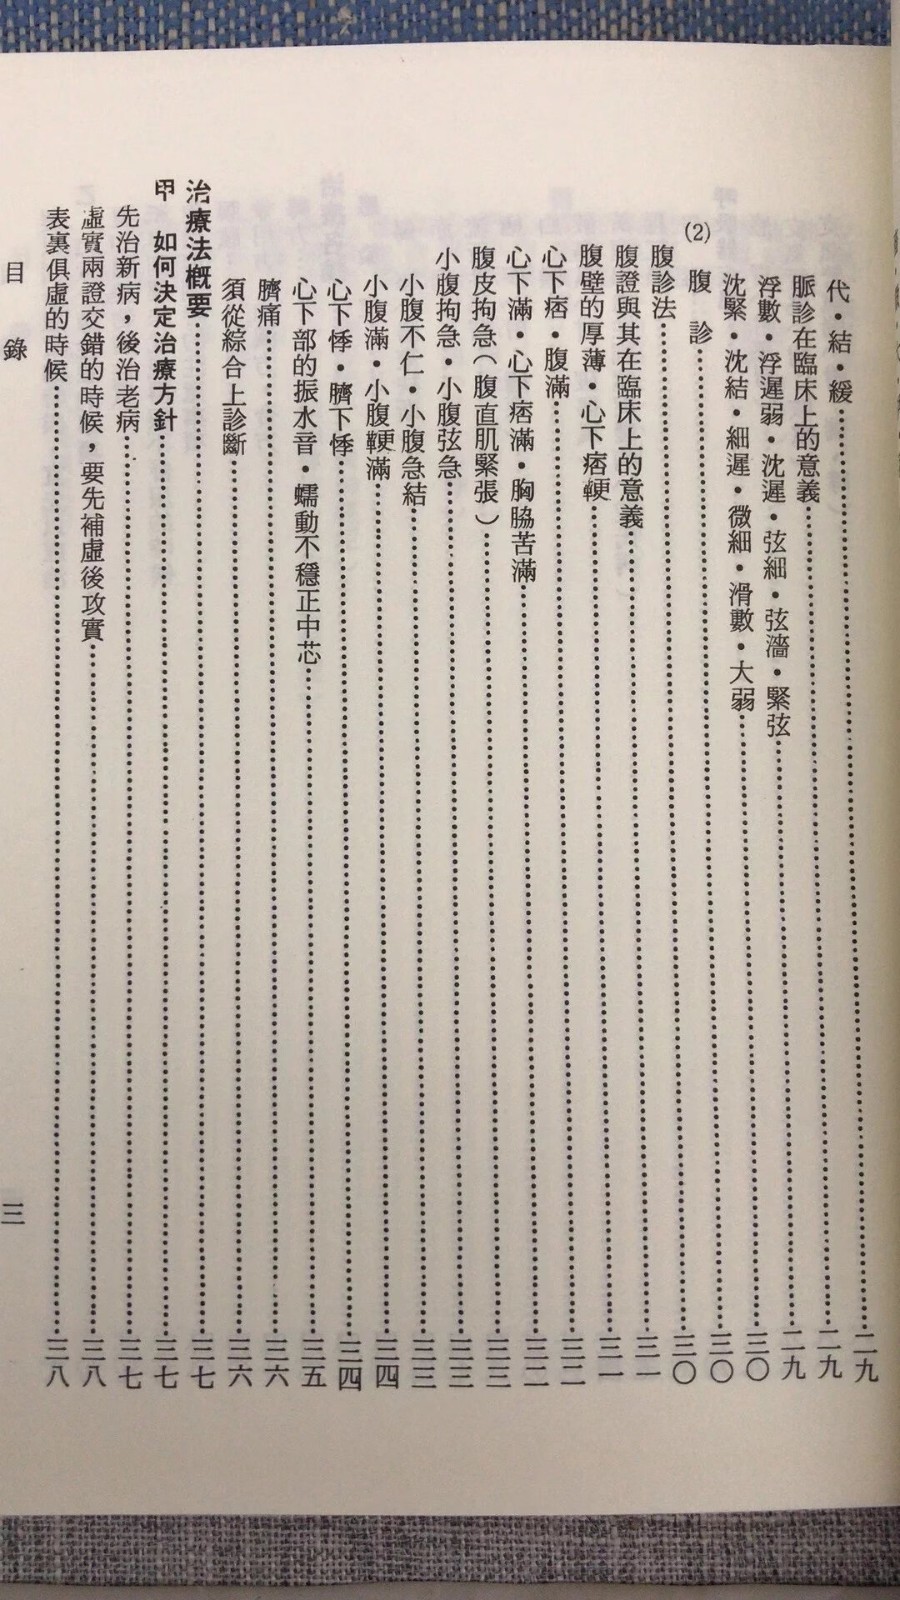 代・結・緩……二九
脈診在臨床上的意義……二九
浮數・浮遲弱・沈遲・弦細・弦濇・緊弦……二九
沈緊・沈結・細遲・微細・滑數・大弱……三〇
(2) 腹 診……三〇
腹診法……三〇
腹證與其在臨床上的意義……三一
腹壁的厚薄・心下痞鞕……三一
心下痞・腹滿……三二
心下滿・心下痞滿・胸脇苦滿……三二
腹皮拘急(腹直肌緊張)……三三
小腹拘急・小腹弦急……三三
小腹不仁・小腹急結……三三
小腹滿・小腹鞕滿……三四
心下悸・臍下悸……三四
心下部的振水音・蠕動不穩正中芯……三五
臍痛……三六
須從綜合上診斷……三六
治療法概要……三七
甲 如何決定治療方針……三七
先治新病,後治老病……三七
虛實兩證交錯的時候,要先補虛後攻實……三八
表裏俱虛的時候……三八
目 錄 三